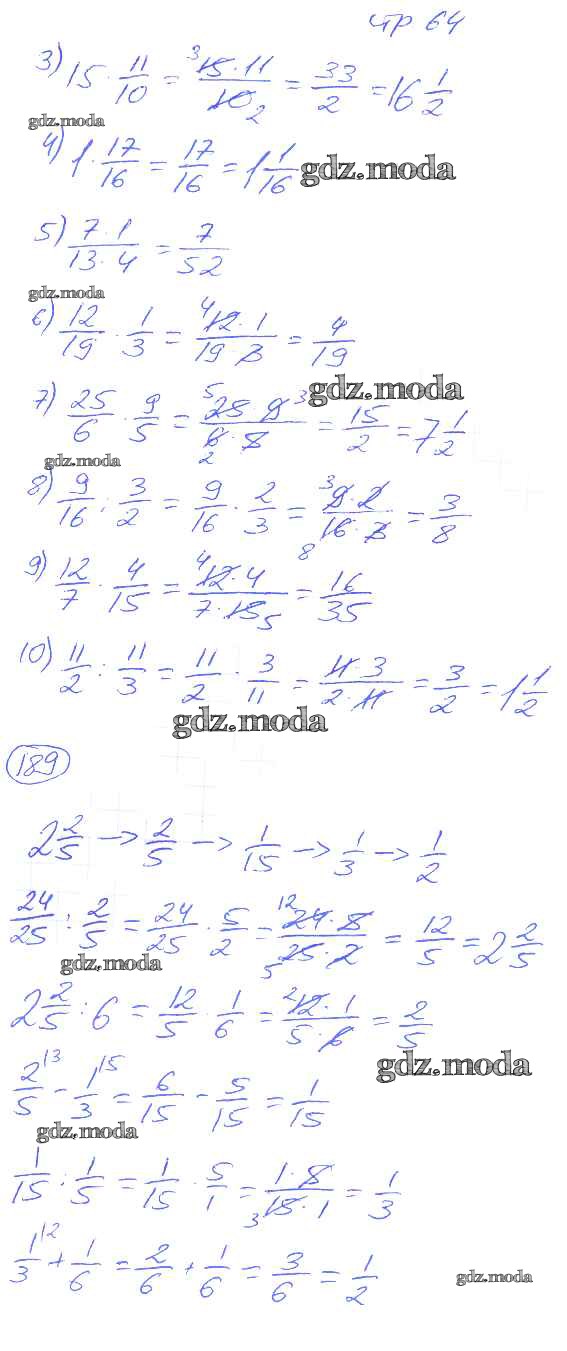 стр 64
3) 15 · 11/10 = 15·11/10 = 33/2 = 16 1/2
gdz.moda
4) 1 · 17/16 = 17/16 = 1 1/16
gdz.moda
5) 7·1/13·4 = 7/52
gdz.moda
6) 12/19 · 1/3 = 12·1/19·3 = 4/19
gdz.moda
7) 25/6 · 9/5 = 25 9/6·5 = 15/2 = 7 1/2
gdz.moda
8) 9/16 : 3/2 = 9/16 · 2/3 = 9·2/16·3 = 3/8
9) 12/7 · 4/15 = 12·4/7·15 = 16/35
10) 11/2 : 11/3 = 11/2 · 3/11 = 11·3/2·11 = 3/2 = 1 1/2
gdz.moda
189
2 2/5 → 2/5 → 1/15 → 1/3 → 1/2
24/25 : 2/5 = 24/25 · 5/2 = 24·5/25·2 = 12/5 = 2 2/5
gdz.moda
2 2/5 : 6 = 12/5 · 1/6 = 12·1/5·6 = 2/5
gdz.moda
2/5 - 1/3 = 6/15 - 5/15 = 1/15
gdz.moda
1/15 : 1/5 = 1/15 · 5/1 = 1·5/15·1 = 1/3
1/3 + 1/6 = 2/6 + 1/6 = 3/6 = 1/2
gdz.moda